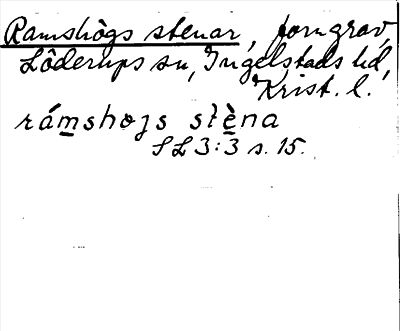 Ramshögs stenar, forngrav,
Löderups sn, Ingelstads hd,
Krist. l.
rámshojs stèna
SL 3:3 s. 15.